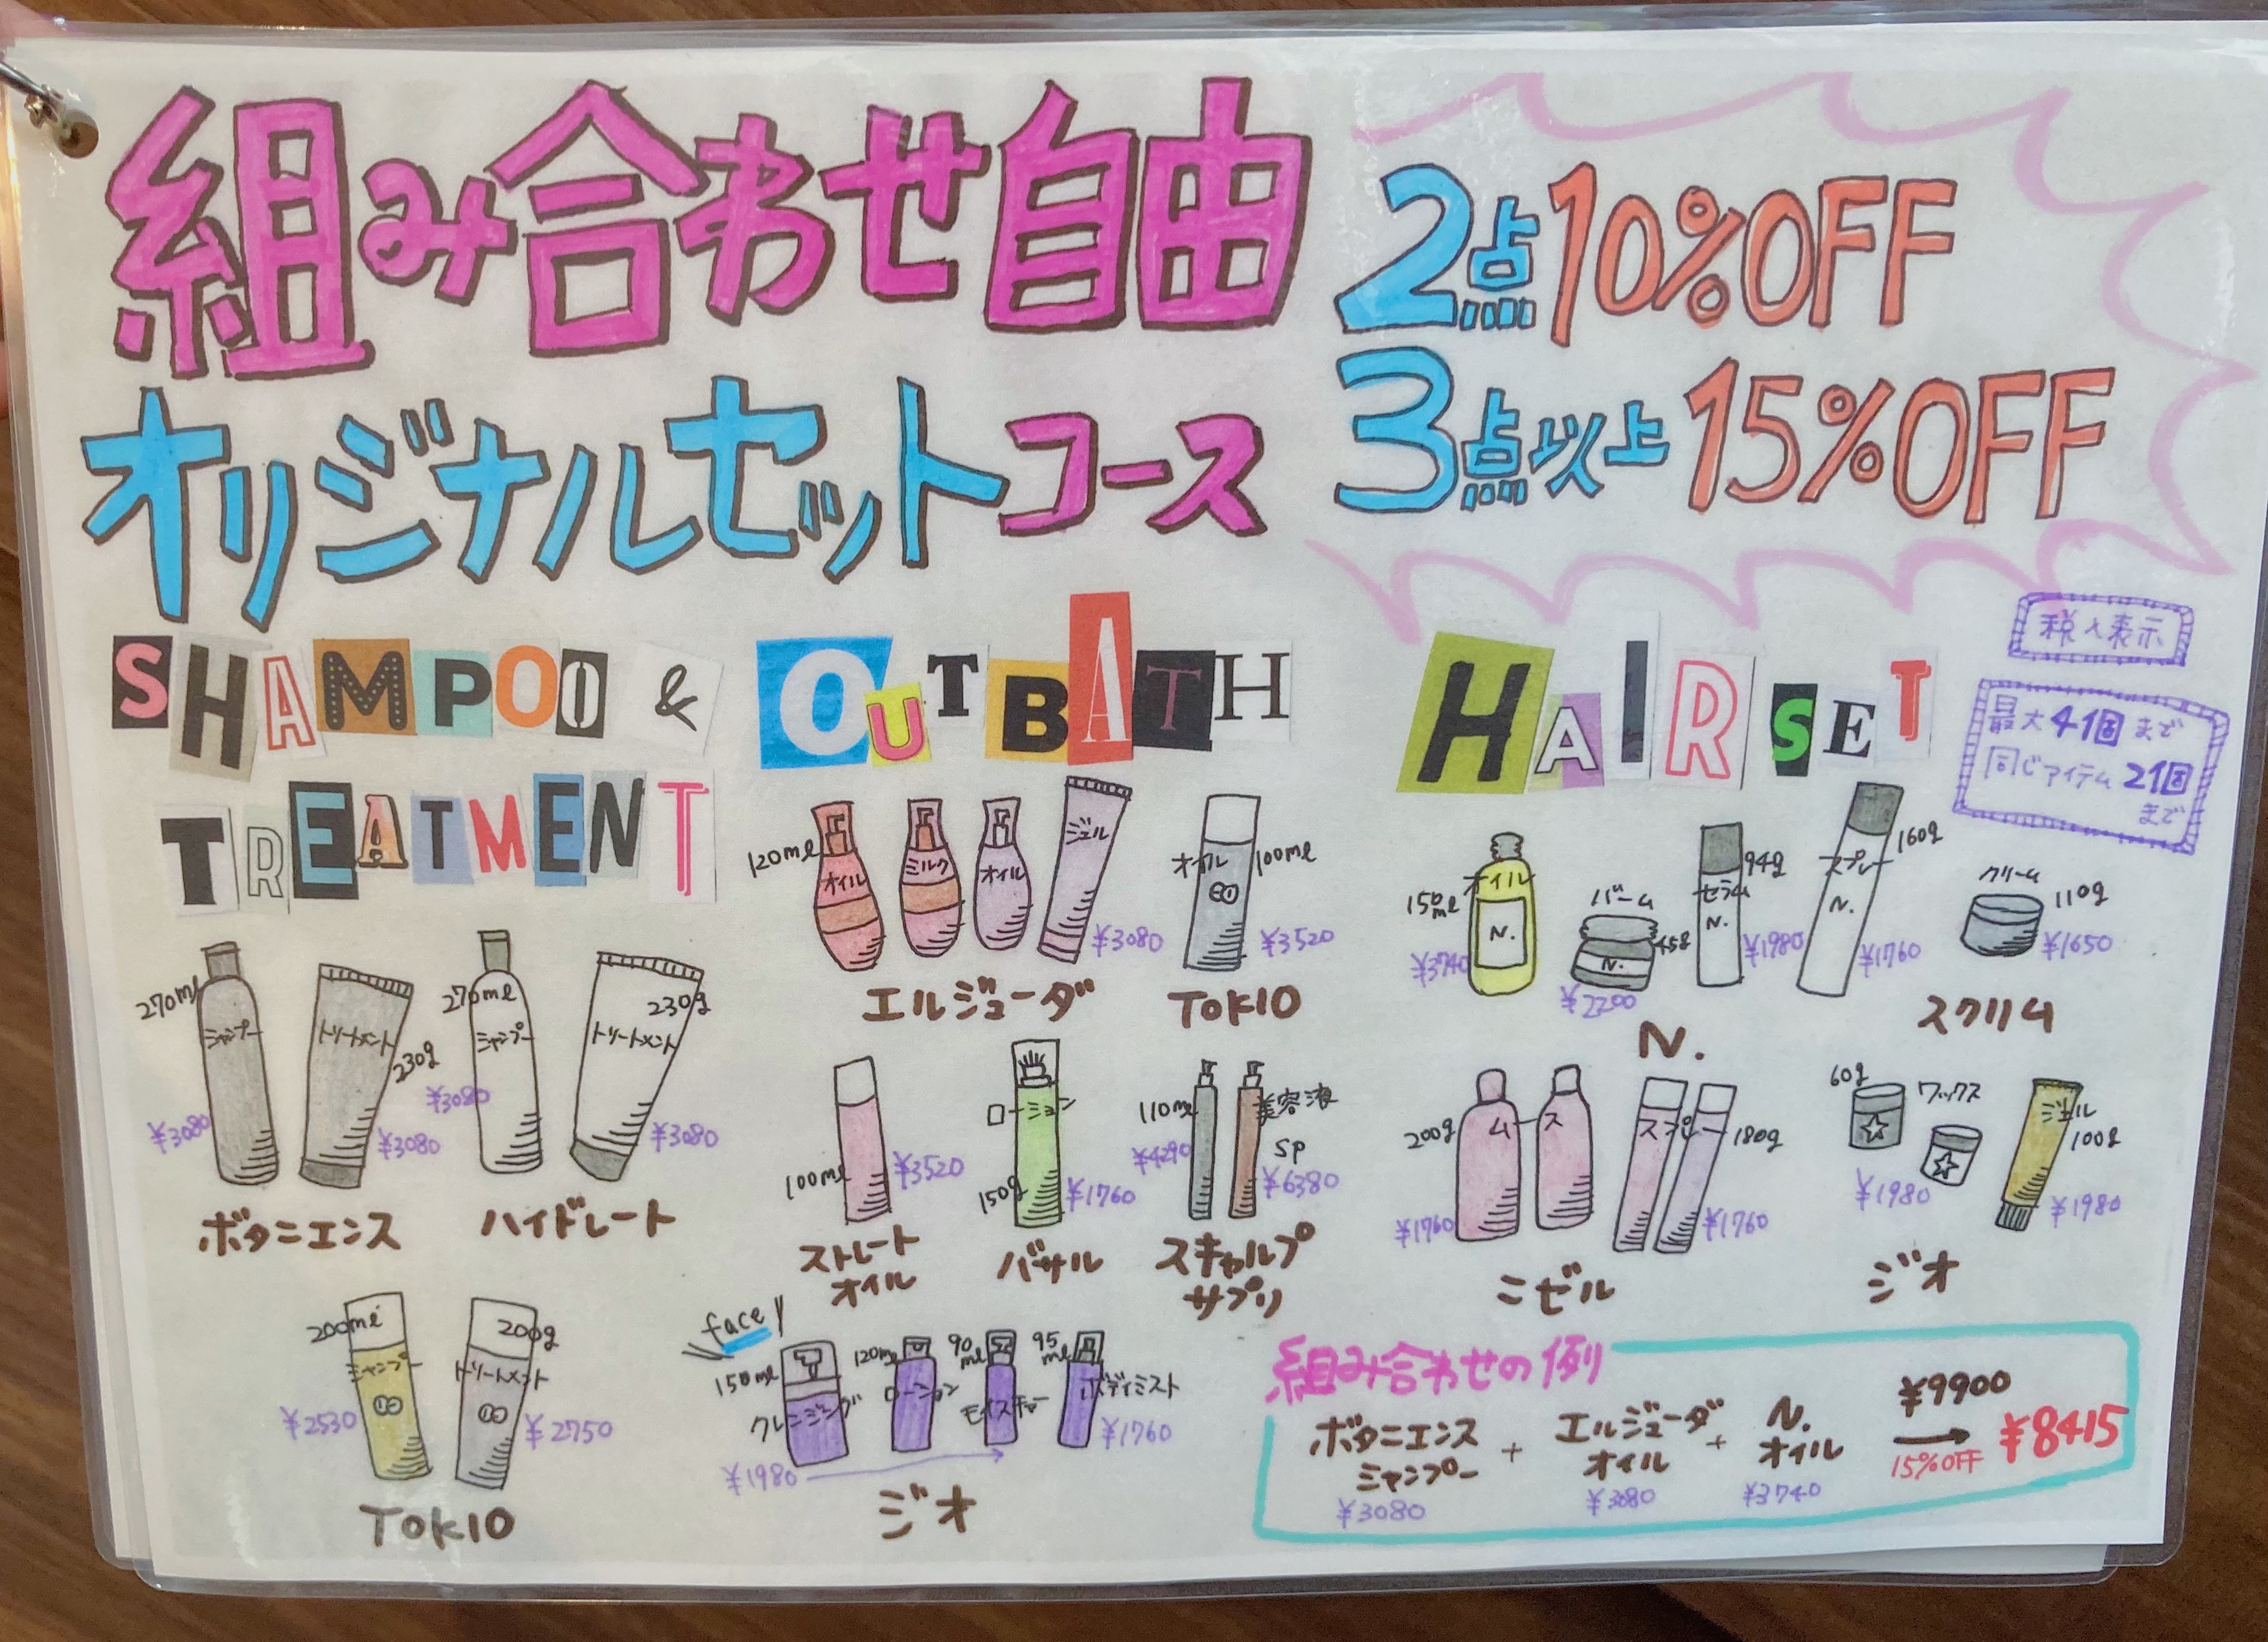 組み合わせ自由
オリジナルセットコース
2点10%OFF
3点以上15%OFF
税込表示
最大4個まで
同じアイテム2個
まで
SHAMPOO &
TREATMENT
270ml
シャンプー
¥3080
トリートメント
230g
¥3080
ボタニエンス
270ml
シャンプー
¥3080
230g
トリートメント
¥3080
ハイドレート
200ml
シャンプー
¥2530
200g
トリートメント
¥2750
TOKIO
OUTBATH
120ml
オイル
ミルク
オイル
ジェル
¥3080
エルジューダ
オイル
100ml
¥3520
TOKIO
100ml
¥3520
ストレート
オイル
ローション
150g
¥1760
バサル
110ml
¥4290
美容液
SP
¥6380
スキャルプ
サプリ
face
150ml
クレンジング
120ml
ローション
90
ml
モイスチャー
95
ml
ボディミスト
¥1980
¥1760
ジオ
HAIR SET
150
ml
オイル
N.
¥3740
バーム
N.
45g
¥2200
94g
セラム
N.
¥1980
160g
スプレー
N.
¥1760
N.
クリーム
110g
¥1650
スクリム
200g
ムース
¥1760
スプレー
180g
¥1760
ニゼル
60g
ワックス
¥1980
ジェル
100g
¥1980
ジオ
組み合わせの例
ボタニエンス
シャンプー
¥3080
+
エルジューダ
オイル
¥3080
+
N.
オイル
¥3740
¥9900
15%OFF
¥8415